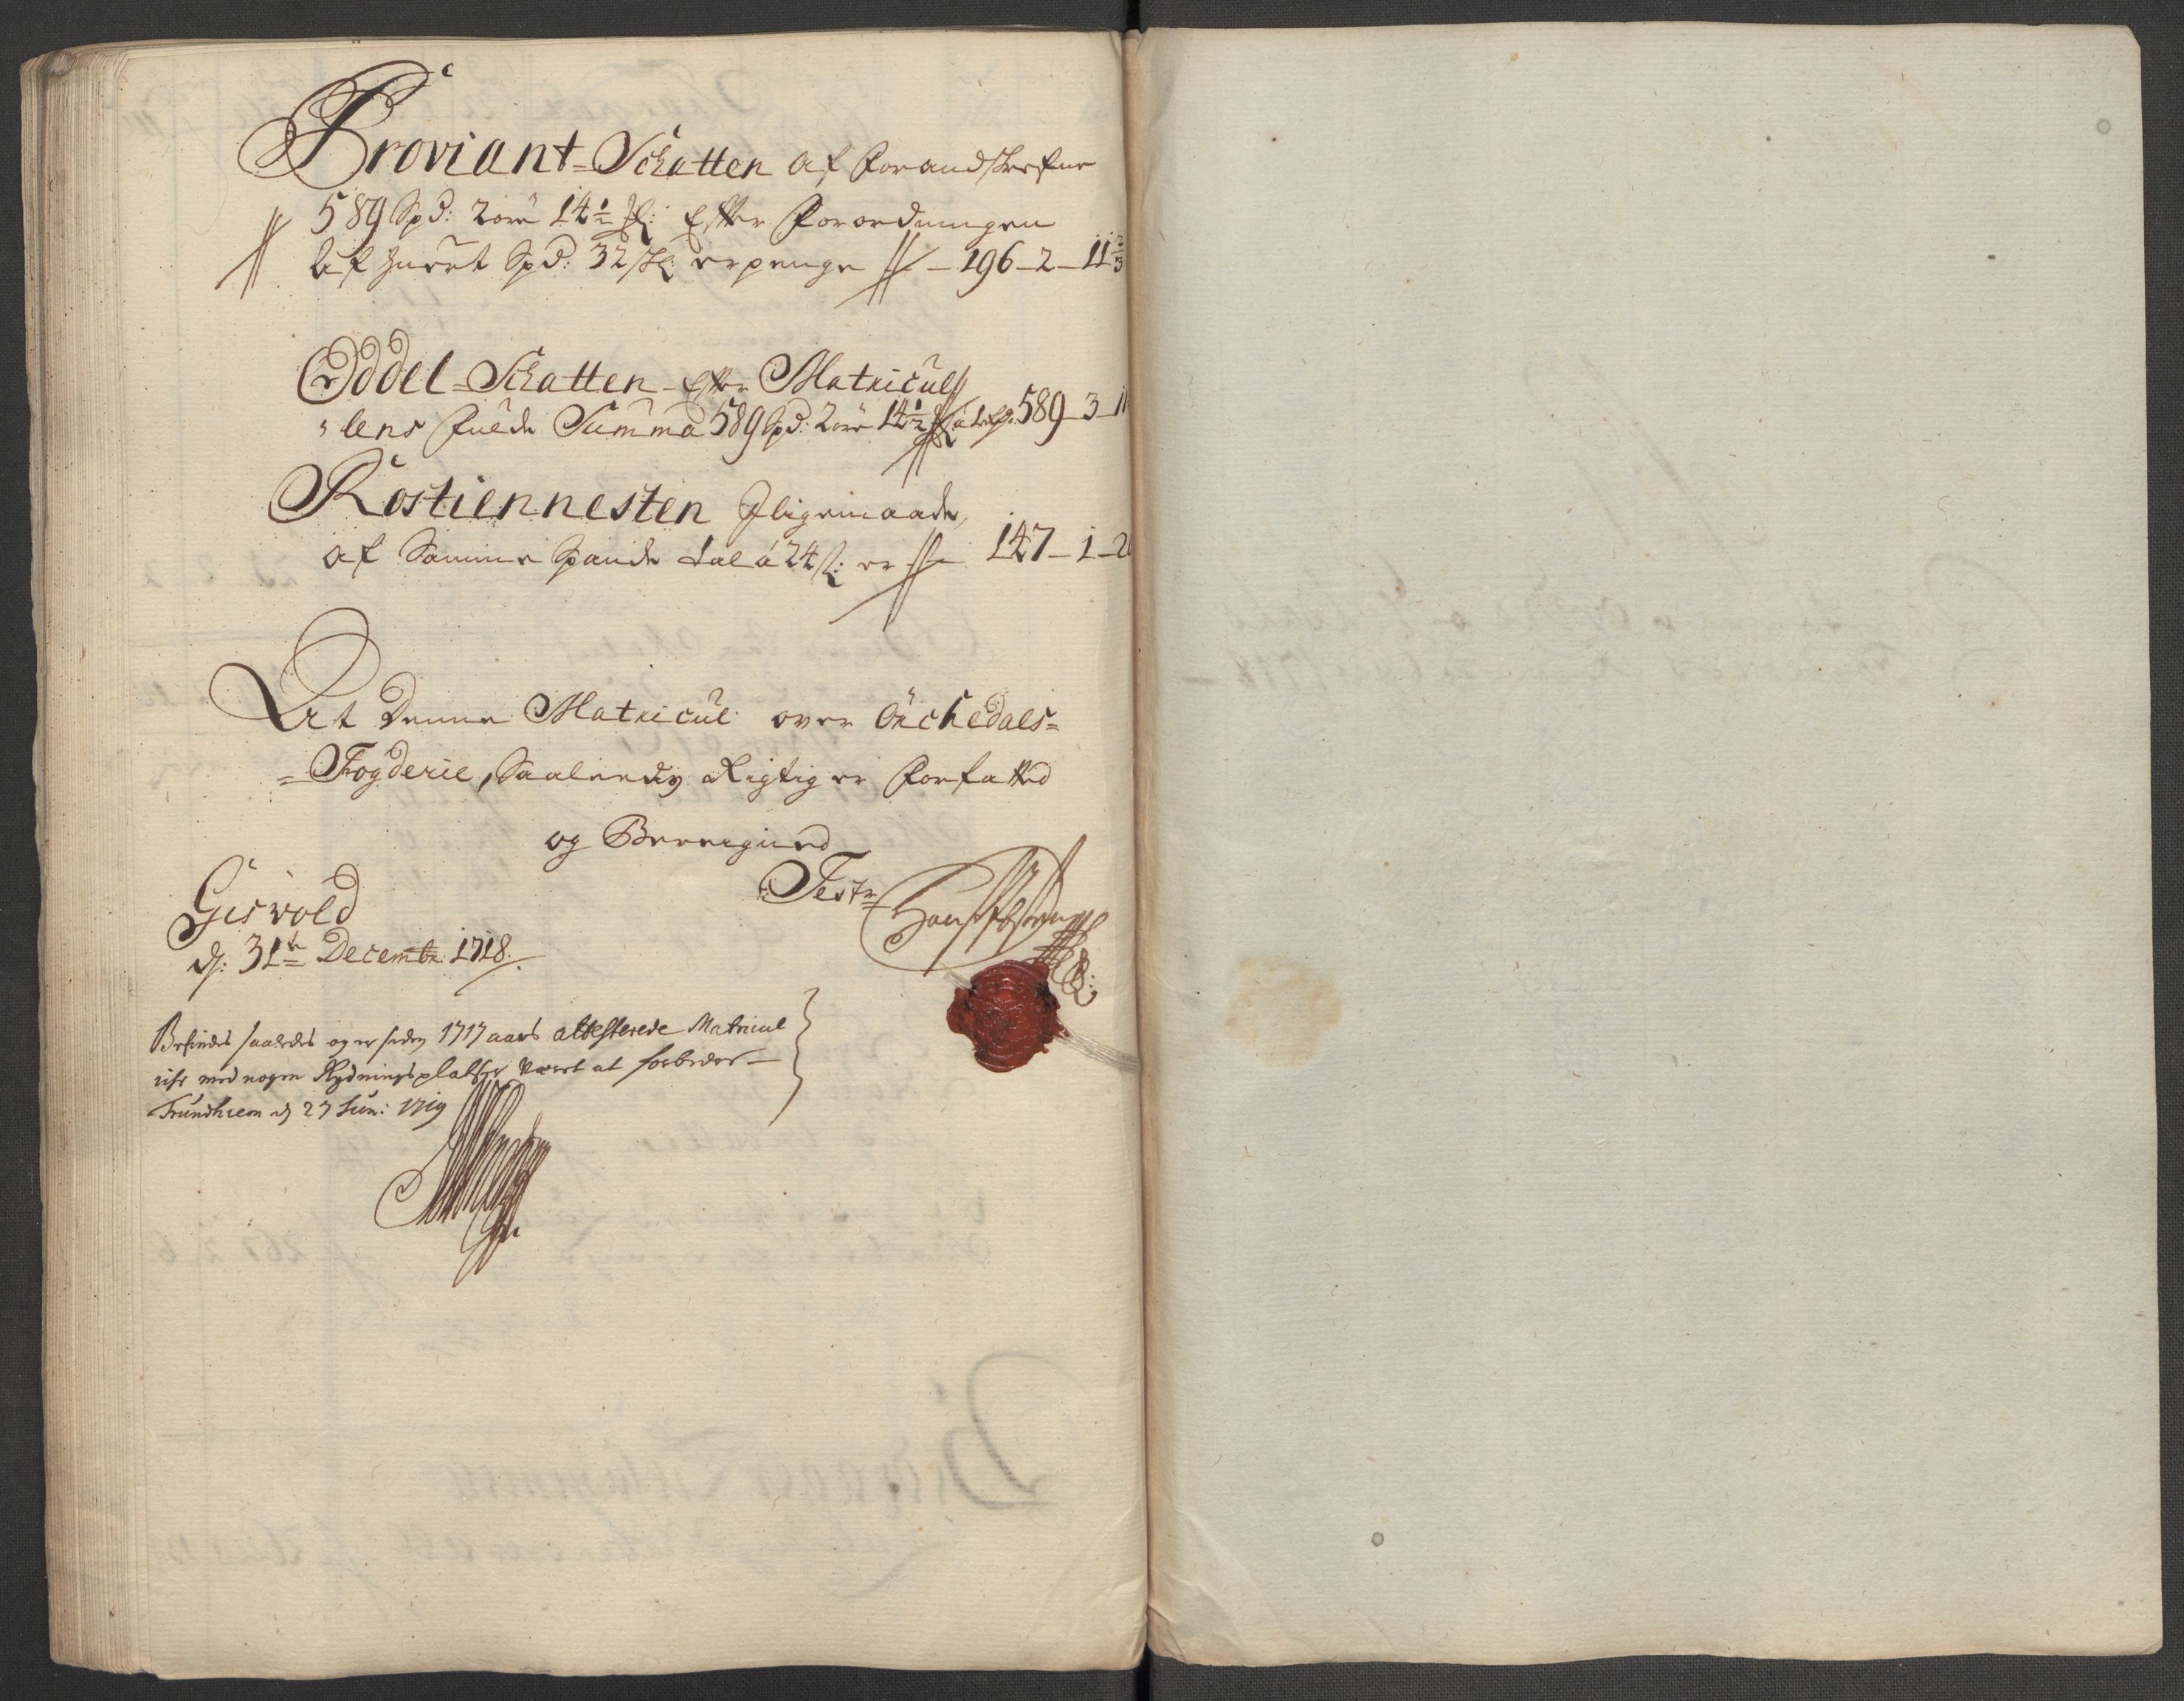 Proviant-Schatten af Forandskrefne
589 Spd: 2 ore 14½ Efter Forordningen
Af huert Spd: 32 sk: er penge – 196 – 2 – 11⅔
Oddel-Schatten efter Matricul
lens fulde Summa 589 Spd: 2 ore 14½ 589 – 3 – 11
Rostiennesten Jligemaade,
af Samme Spande tal á 24 sk: er 147 – 1 – 2
At Denne Matricul over Örchedals=
=Fogderie, Saaledis Rigtig er Forfatted
og Beregned
Teste
Gisvold
d: 31te Decembr: 1718.
Befindes saaledes og er siden 1717 aars attesterede Matricul
icke med nogen Rydningsplatser vert at forbedre
Trundhiem d 27 Jun: 1719